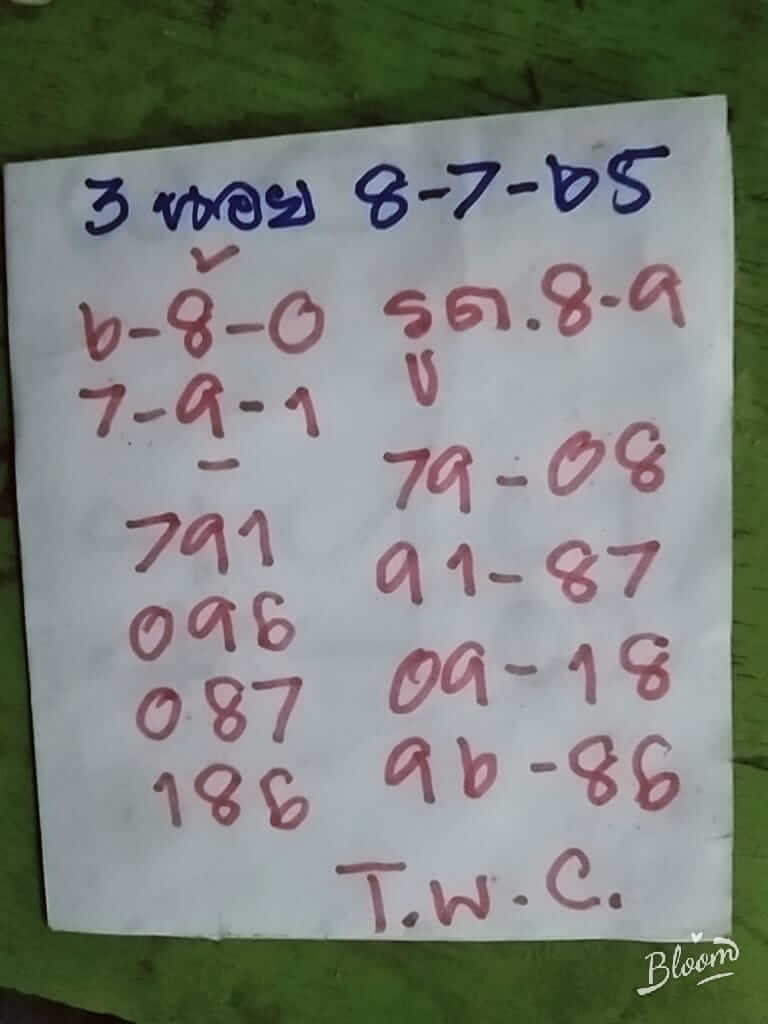 3 หาอย 8-7-65
6-8-0 รูด.8-9
7-9-1 ບ
79-08
791
91-87
096
09-18
087
96-86
186
T.W.C.
Bloom